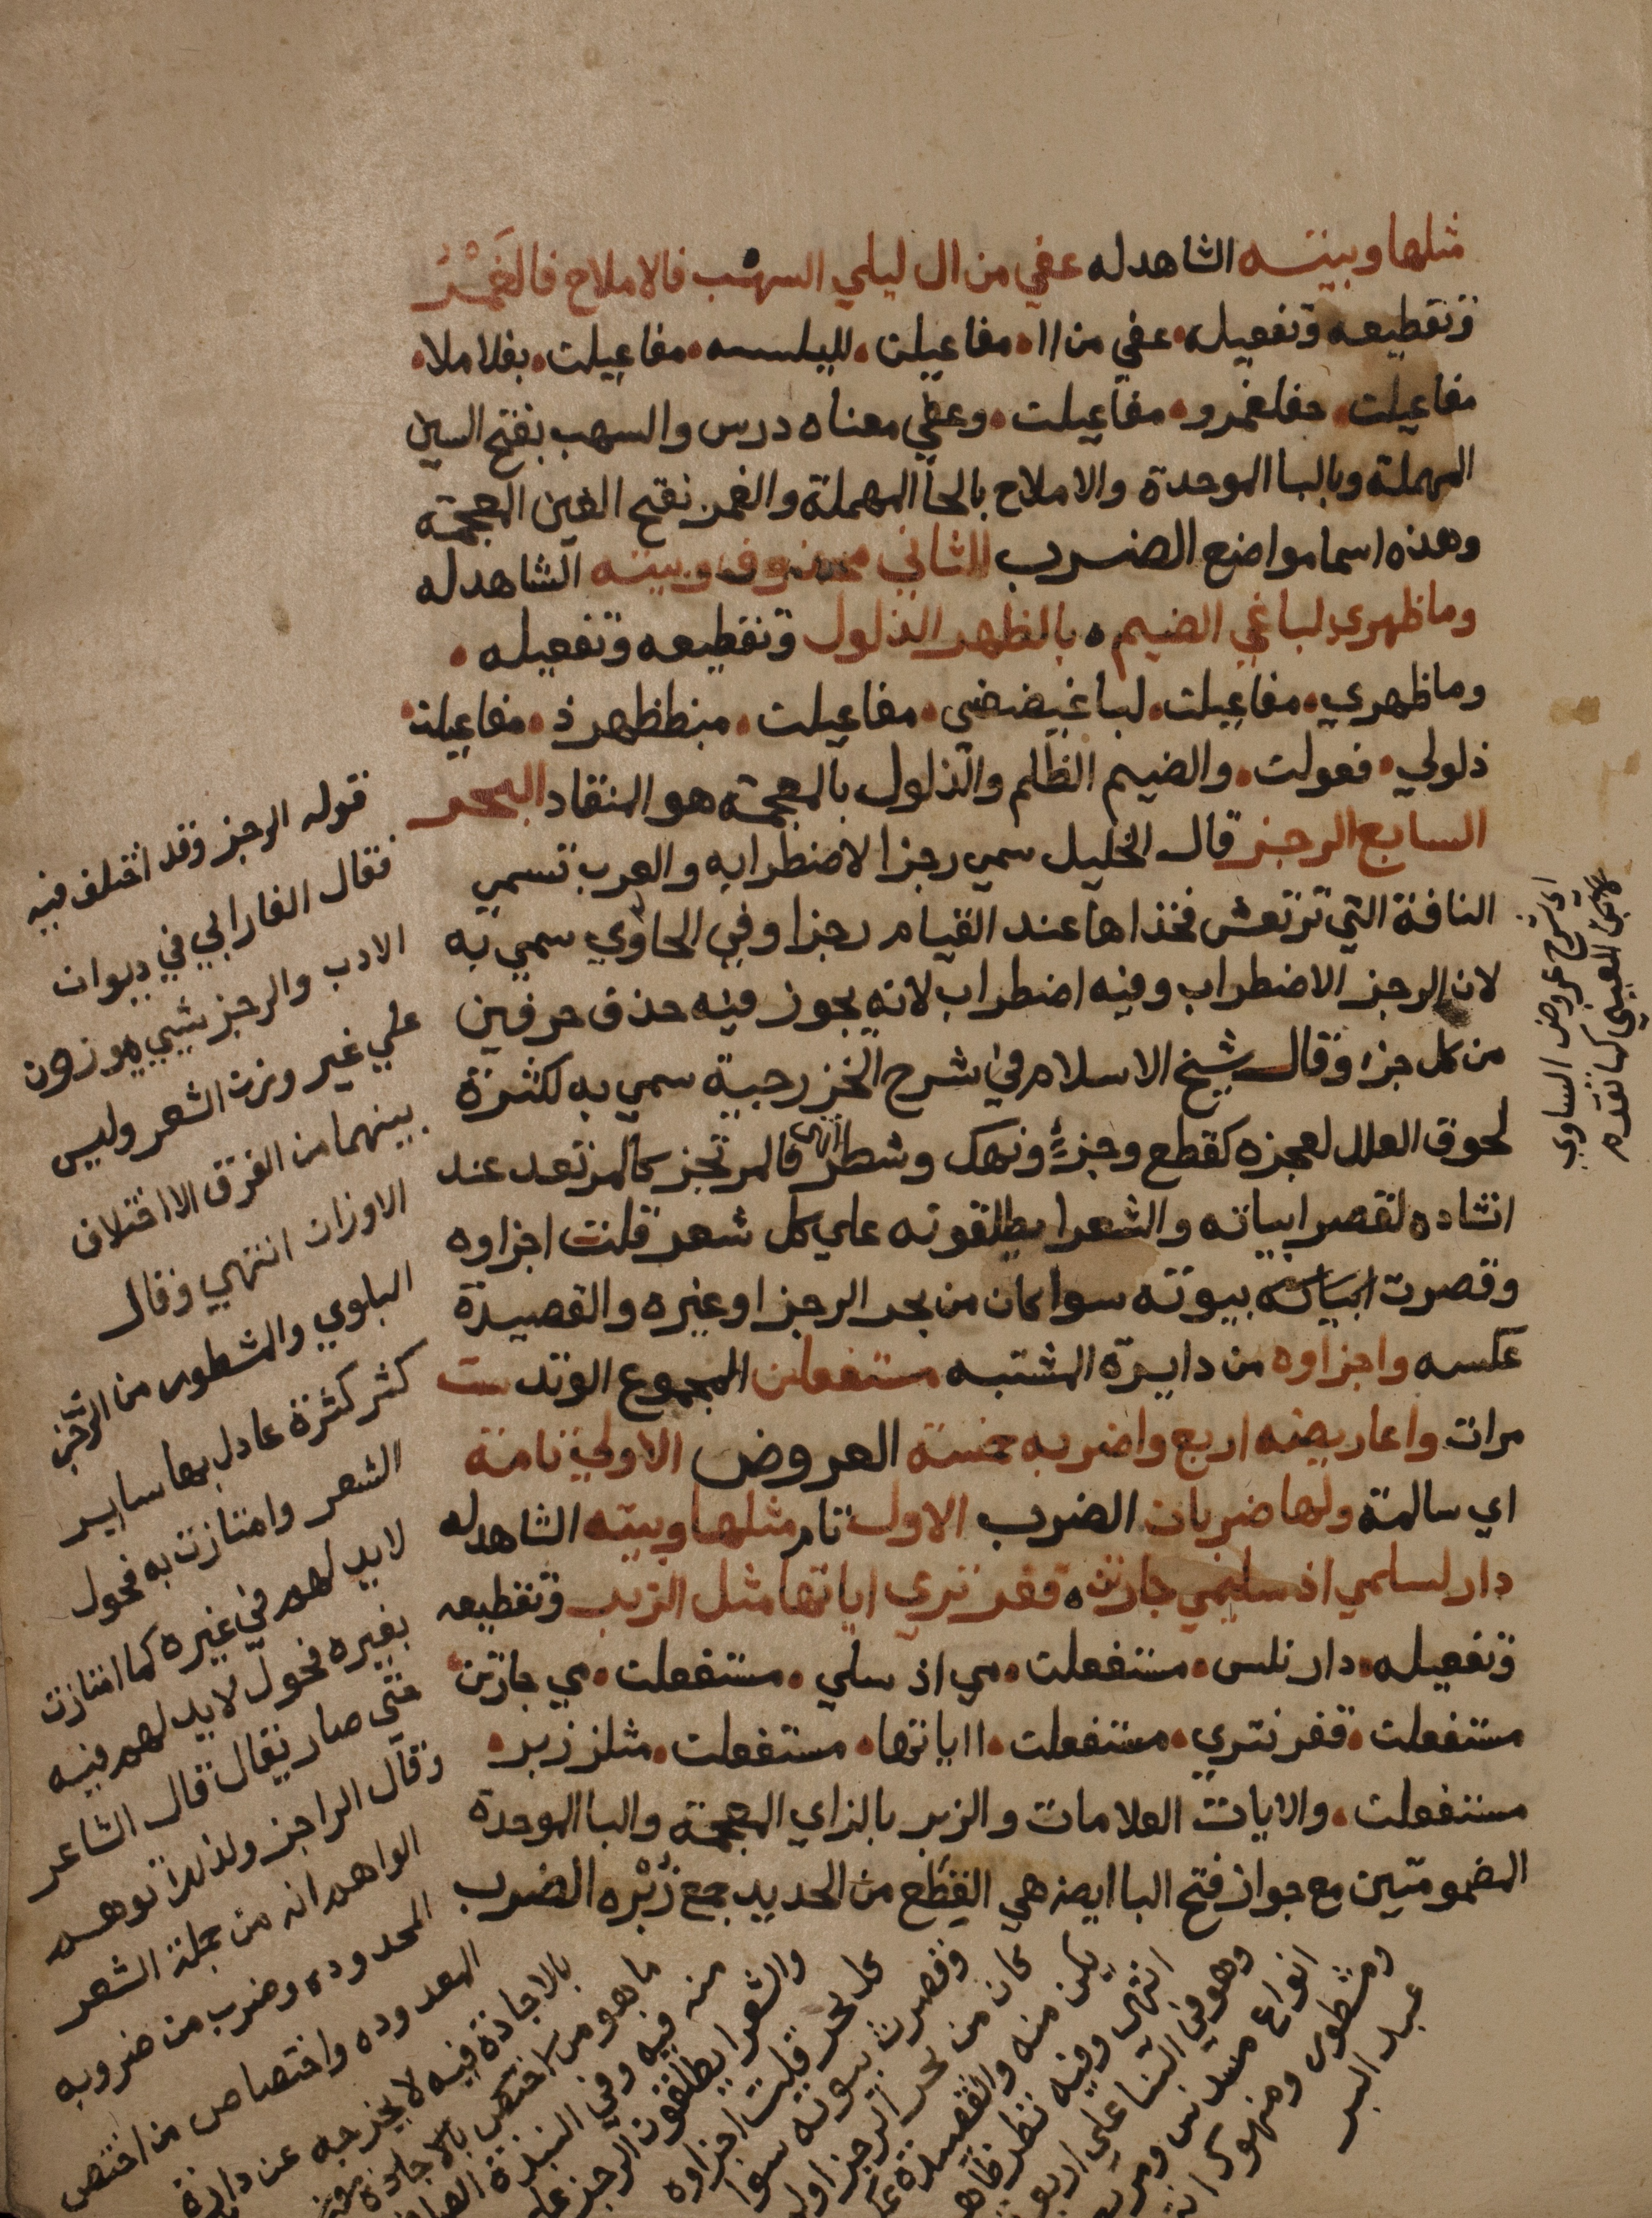 مثلها وبيته الشاهد له عفي من ال ليلي السهب فالاملاح فالغَمْرُ
وتقطيعه وتفعيله • عفي من اا • مفاعيلن • لليلسسه • مفاعيلن • بفلاملا •
مفاعيلن • حفلغمرو • مفاعيلن • وعفي معناه درس والسهب بفتح السين
المهملة وبالبا الموحدة والاملاح بالحا المهملة والغمر بفتح الغين المعجمة
وهذه اسما مواضع الضرب الثاني محذوف وبيته الشاهد له
وما ظهري لباغي الضيم ه بالظهر الذلول وتقطيعه وتفعيله •
وما ظهري • مفاعيلن • لباغيضضي • مفاعيلن • مبظظهرذ • مفاعيلن •
ذلولي • فعولن • والضيم الظلم والذلول بالمعجمة هو المنقاد البحر
السابع الرجز قال الخليل سمي رجزا لاضطرابه والعرب تسمي
الناقة التي ترتعش فخذاها عند القيام رجزا وفي الحاوي سمي به
لان الرجز الاضطراب وفيه اضطراب لانه يجوز فيه حذف حرفين
من كل جزء وقال شيخ الاسلام في شرح الخزرجية سمي به لكثرة
لحوق العلل لعجزه كقطع وجزء ونهك وشطر انتهى فالمرتجز كالمرتعد عند
انشاده لقصر ابياته والشعرا يطلقونه علي كل شعر قلت اجزاوه
وقصرت ابياته بيوته سوا كان من بحر الرجز او غيره والقصيدة
عكسه واجزاوه من دايرة المشتبه مستفعلن المجموع الوتد ست
مرات واعاريضه اربع واضربه خمسة العروض الاولي تامة
اي سالمة ولها ضربان الضرب الاول تام مثلها وبيته الشاهد له
دار لسلمي اذ سليمي جارتن ه قفر تري اياتها مثل الزبر وتقطيعه
وتفعيله • دارنلسل • مستفعلن • مي اذ سلي • مستفعلن • مي جارتن •
مستفعلن • قفرنتري • مستفعلن • اا ياتها • مستفعلن • مثلززبر •
مستفعلن • والايات العلامات والزبر بالزاي المعجمة والبا الموحدة
المضمومتين مع جواز فتح البا ايضا هي القِطَع من الحديد جمع زُبْره الضرب
اي شرح عروض الساوي
للعيني كما تقدم
قوله الرجز وقد اختلف فيه
فقال الفارابي في ديوان
الادب والرجز شيي موزون
علي غير وزن الشعر وليس
بينهما من الفرق الا اختلاف
الاوزان انتهي وقال
البلوي والمشطور من الرجز
كثر كثرة عادل بها ساير
الشعر وامتازت به فحول
لا يد لهم في غيره كما امتازت
بغيره فحول لا يد لهم فيه
حتي صار يقال قال الشاعر
وقال الراجز ولذلك توهم
الواهم انه من جملة الشعر
المحدوده وضرب من ضروبه
المعدوده واختصاص من اختص
بالاجادة فيه لا يخرجه عن دايرة
ما هو من اختص بالاجادة
منه فيه وفي النبذة
والشعرا يطلقون الرجز علي
كل بحر قلت اجزاوه
وقصرت بيوته سوا
كان من بحر الرجز او لم
يكن منه والقصيدة
انتهى وفيه نظر ظاهر
وهو في البنا علي اربعة
انواع مسدس ومربع
ومشطور ومنهوك انتهى
عبد البر